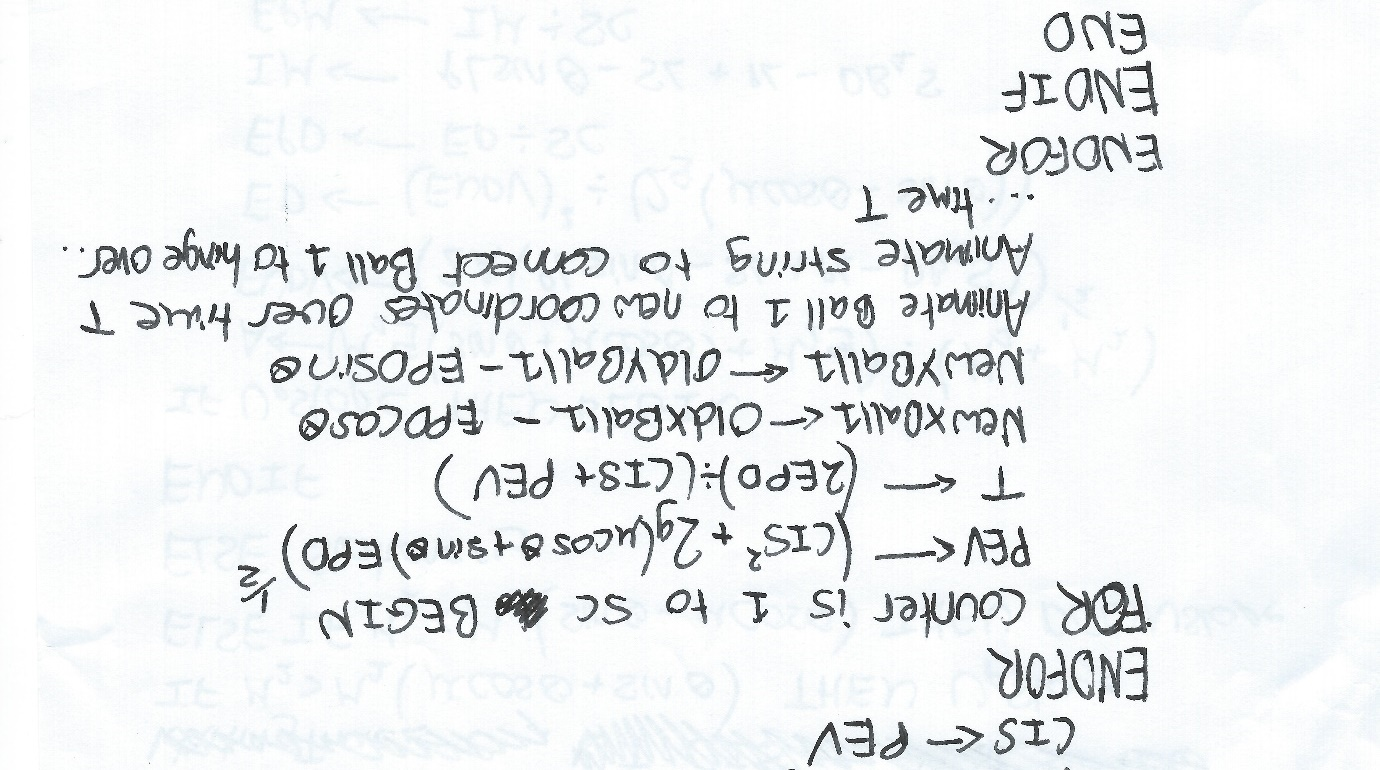 CIS ← PEV
ENDFOR
FOR counter is 1 to SC BEGIN
PEV ← (CIS² + 2g(μcosθ+sinθ)EPD)^1/2
T ← (2EPD)÷(CIS+PEV)
NewXBall1 ← OldXBall1 - EPDcosθ
NewYBall1 ← OldYBall1 - EPDsinθ
Animate Ball 1 to new coordinates over time T
Animate string to connect Ball 1 to hinge over..
... time T
ENDFOR
ENDIF
END